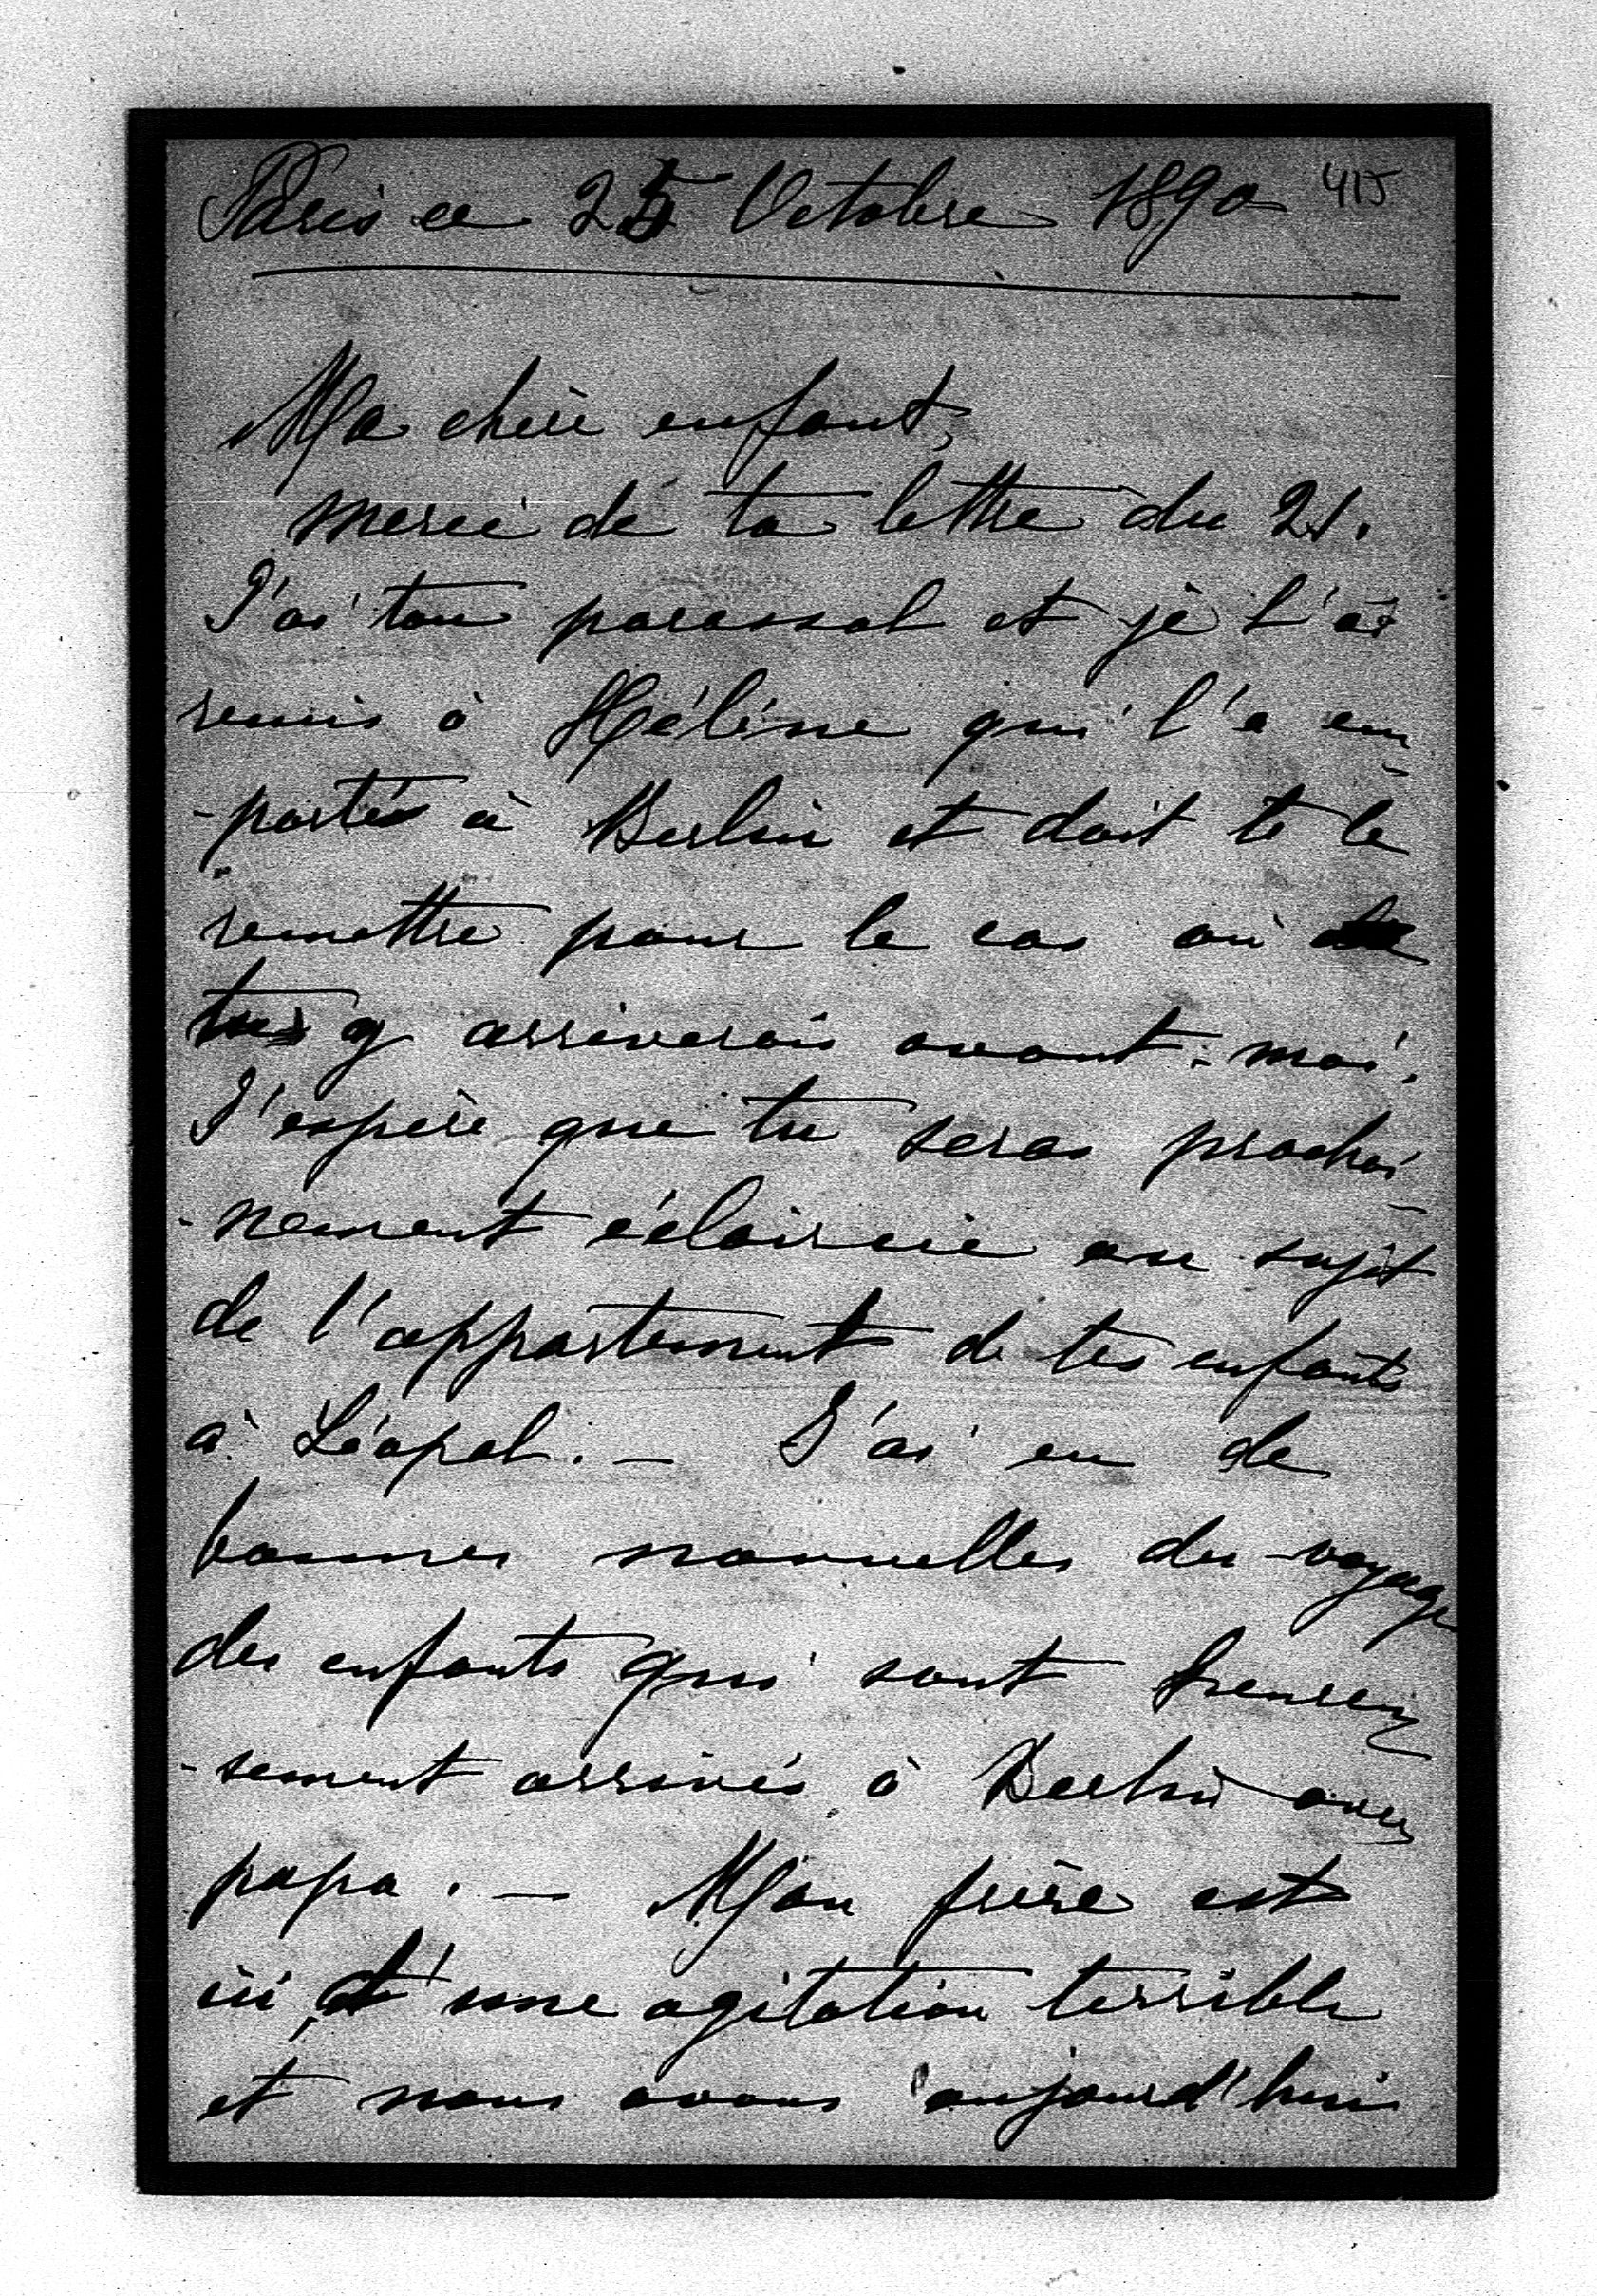 Paris ce 25 Octobre 1890 415
Ma chère enfant,
merci de ta lettre du 21.
J'ai ton parassol et je l'ai
remis à Hélène qui l'a em
-porté à Berlin et doit te le
remettre pour le cas où
tu y arriverais avant-moi.
J'espère que tu seras prochai
-nement éclaircie au sujet
de l'appartement de tes enfants
à Léopol. — J'ai eu de
bonnes nouvelles du voyage
des enfants qui sont heureu
-sement arrivés à Berlin avec
papa. — Mon frère est
ici, d'une agitation terrible
et nous avons aujourd'hui